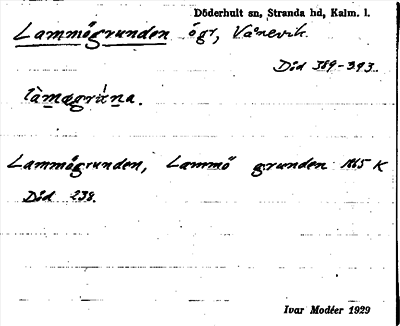 Döderhult sn, Stranda hd, Kalm. l.
Lammögrunden ögr, Vånevik.
Död 389-393.
làmagrúna.
Lammögrunden, Lammö grunden 1865 K
Död 238.
Ivar Modéer 1929